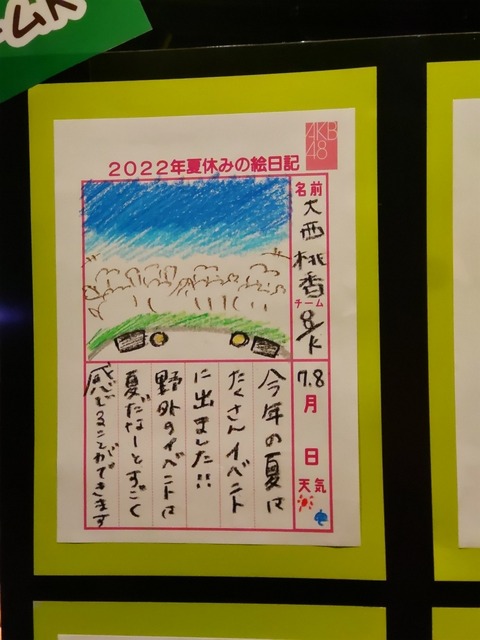 AKB
48
2022年夏休みの絵日記
名前
大西桃香
チーム
8/K
7.8
月
日
天気
今年の夏は
たくさんイベント
に出ました!!
野外のイベントは
夏だなーとすごく
感じることができます